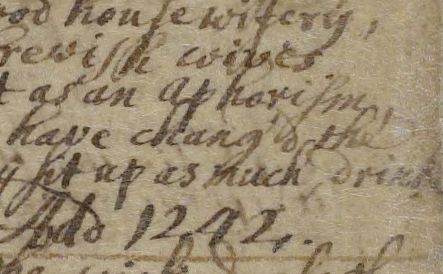 ood houſewifery,
reviſh wives
t as an Aphoriſm,
have chang'd the
y ſit up as much drink
Add 1242.